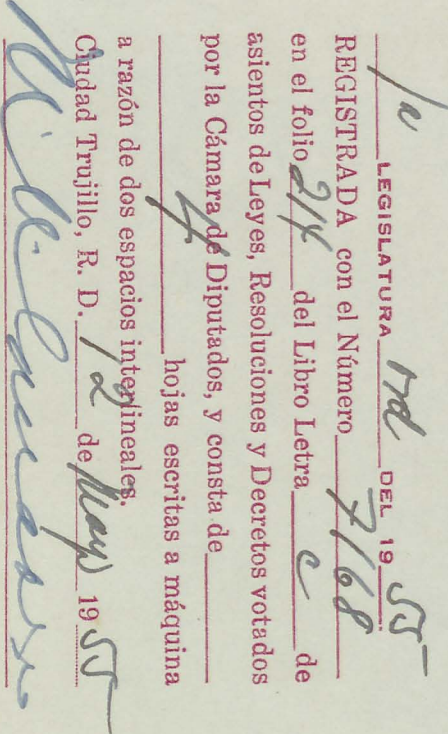 1a LEGISLATURA ord DEL 1955
REGISTRADA con el Número 7168
en el folio 214 del Libro Letra C de
asientos de Leyes, Resoluciones y Decretos votados
por la Cámara de Diputados, y consta de
4 hojas escritas a máquina
a razón de dos espacios interlineales.
Ciudad Trujillo, R. D. 12 de Mayo 1955